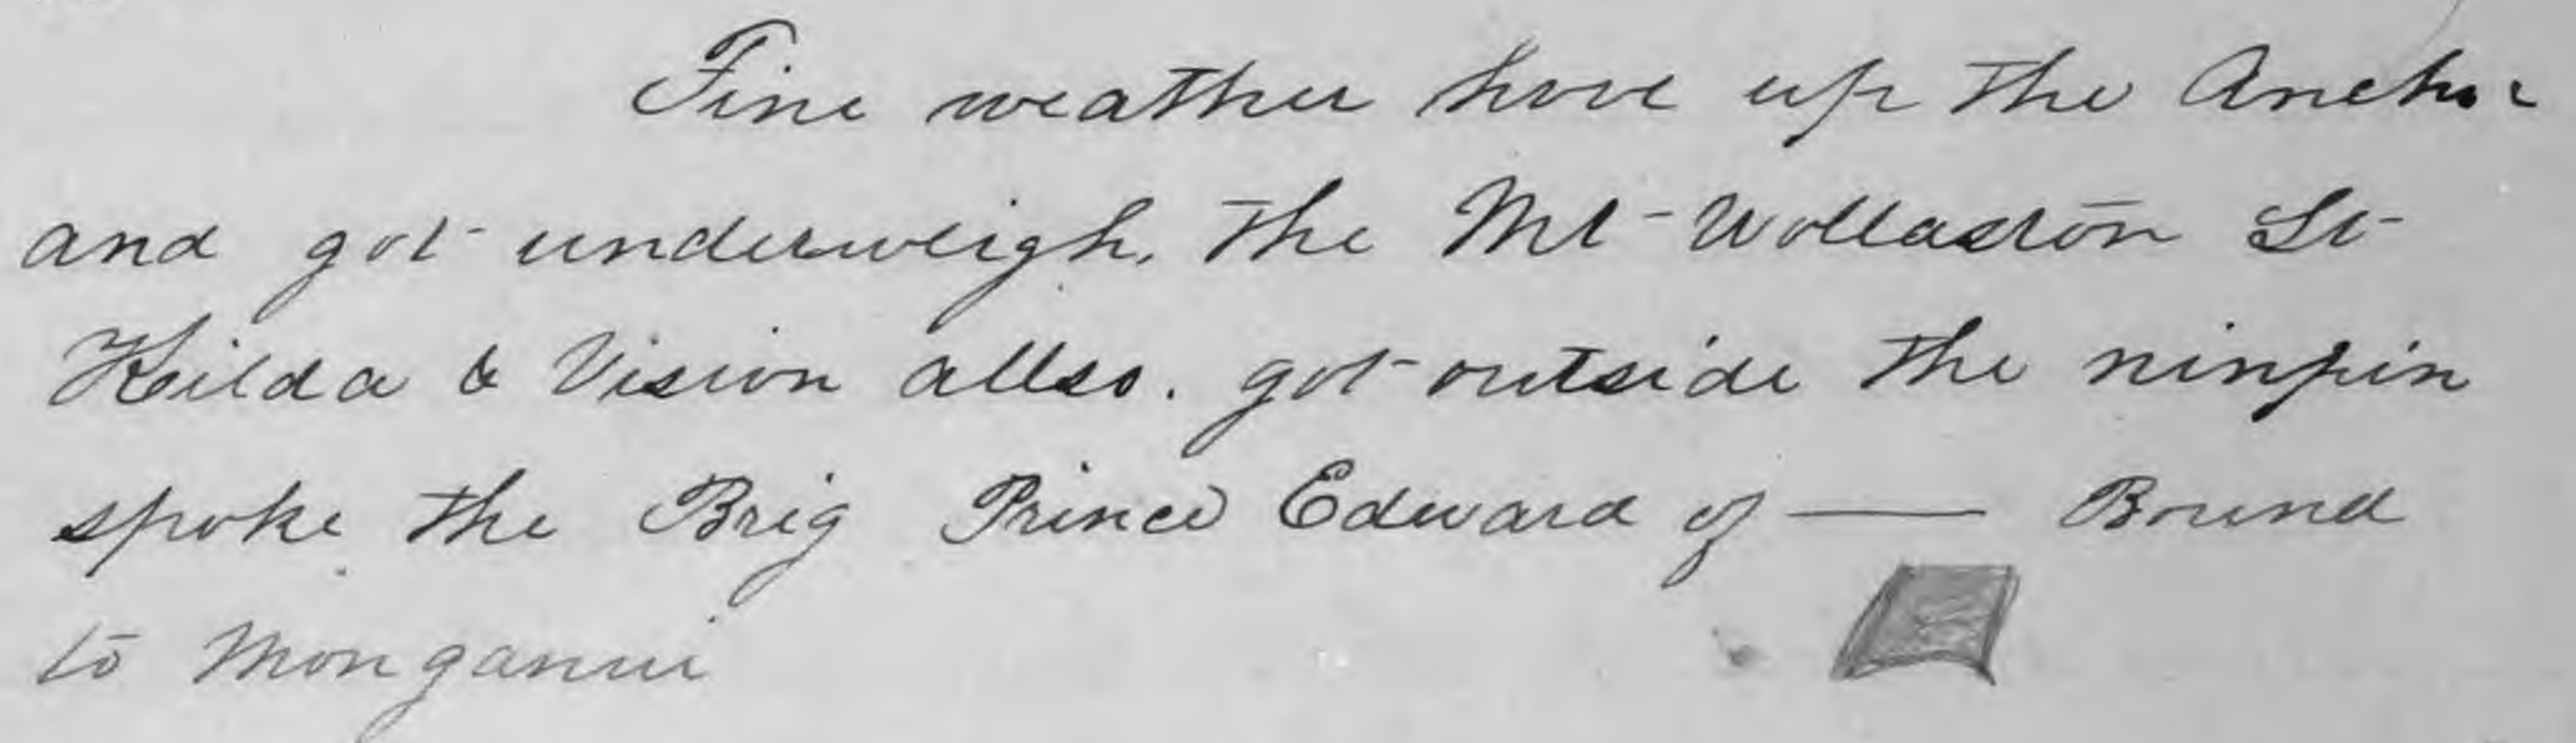 Fine weather hove up the Anchor
and got underweigh. The Mt Wollaston St
Kilda & Vision allso. got outside the ninpin
spoke the Brig Prince Edward of —— Bound
to Monganui